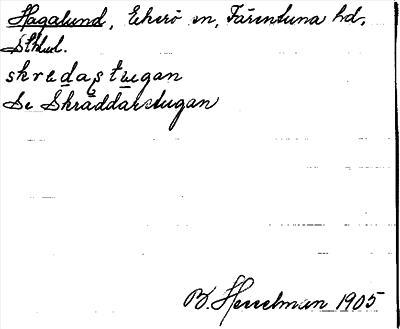 Hagalund, Ekerö sn, Färentuna hd,
Sthlm l.
skredastugan
Se Skräddarstugan
B. Hesselman 1905